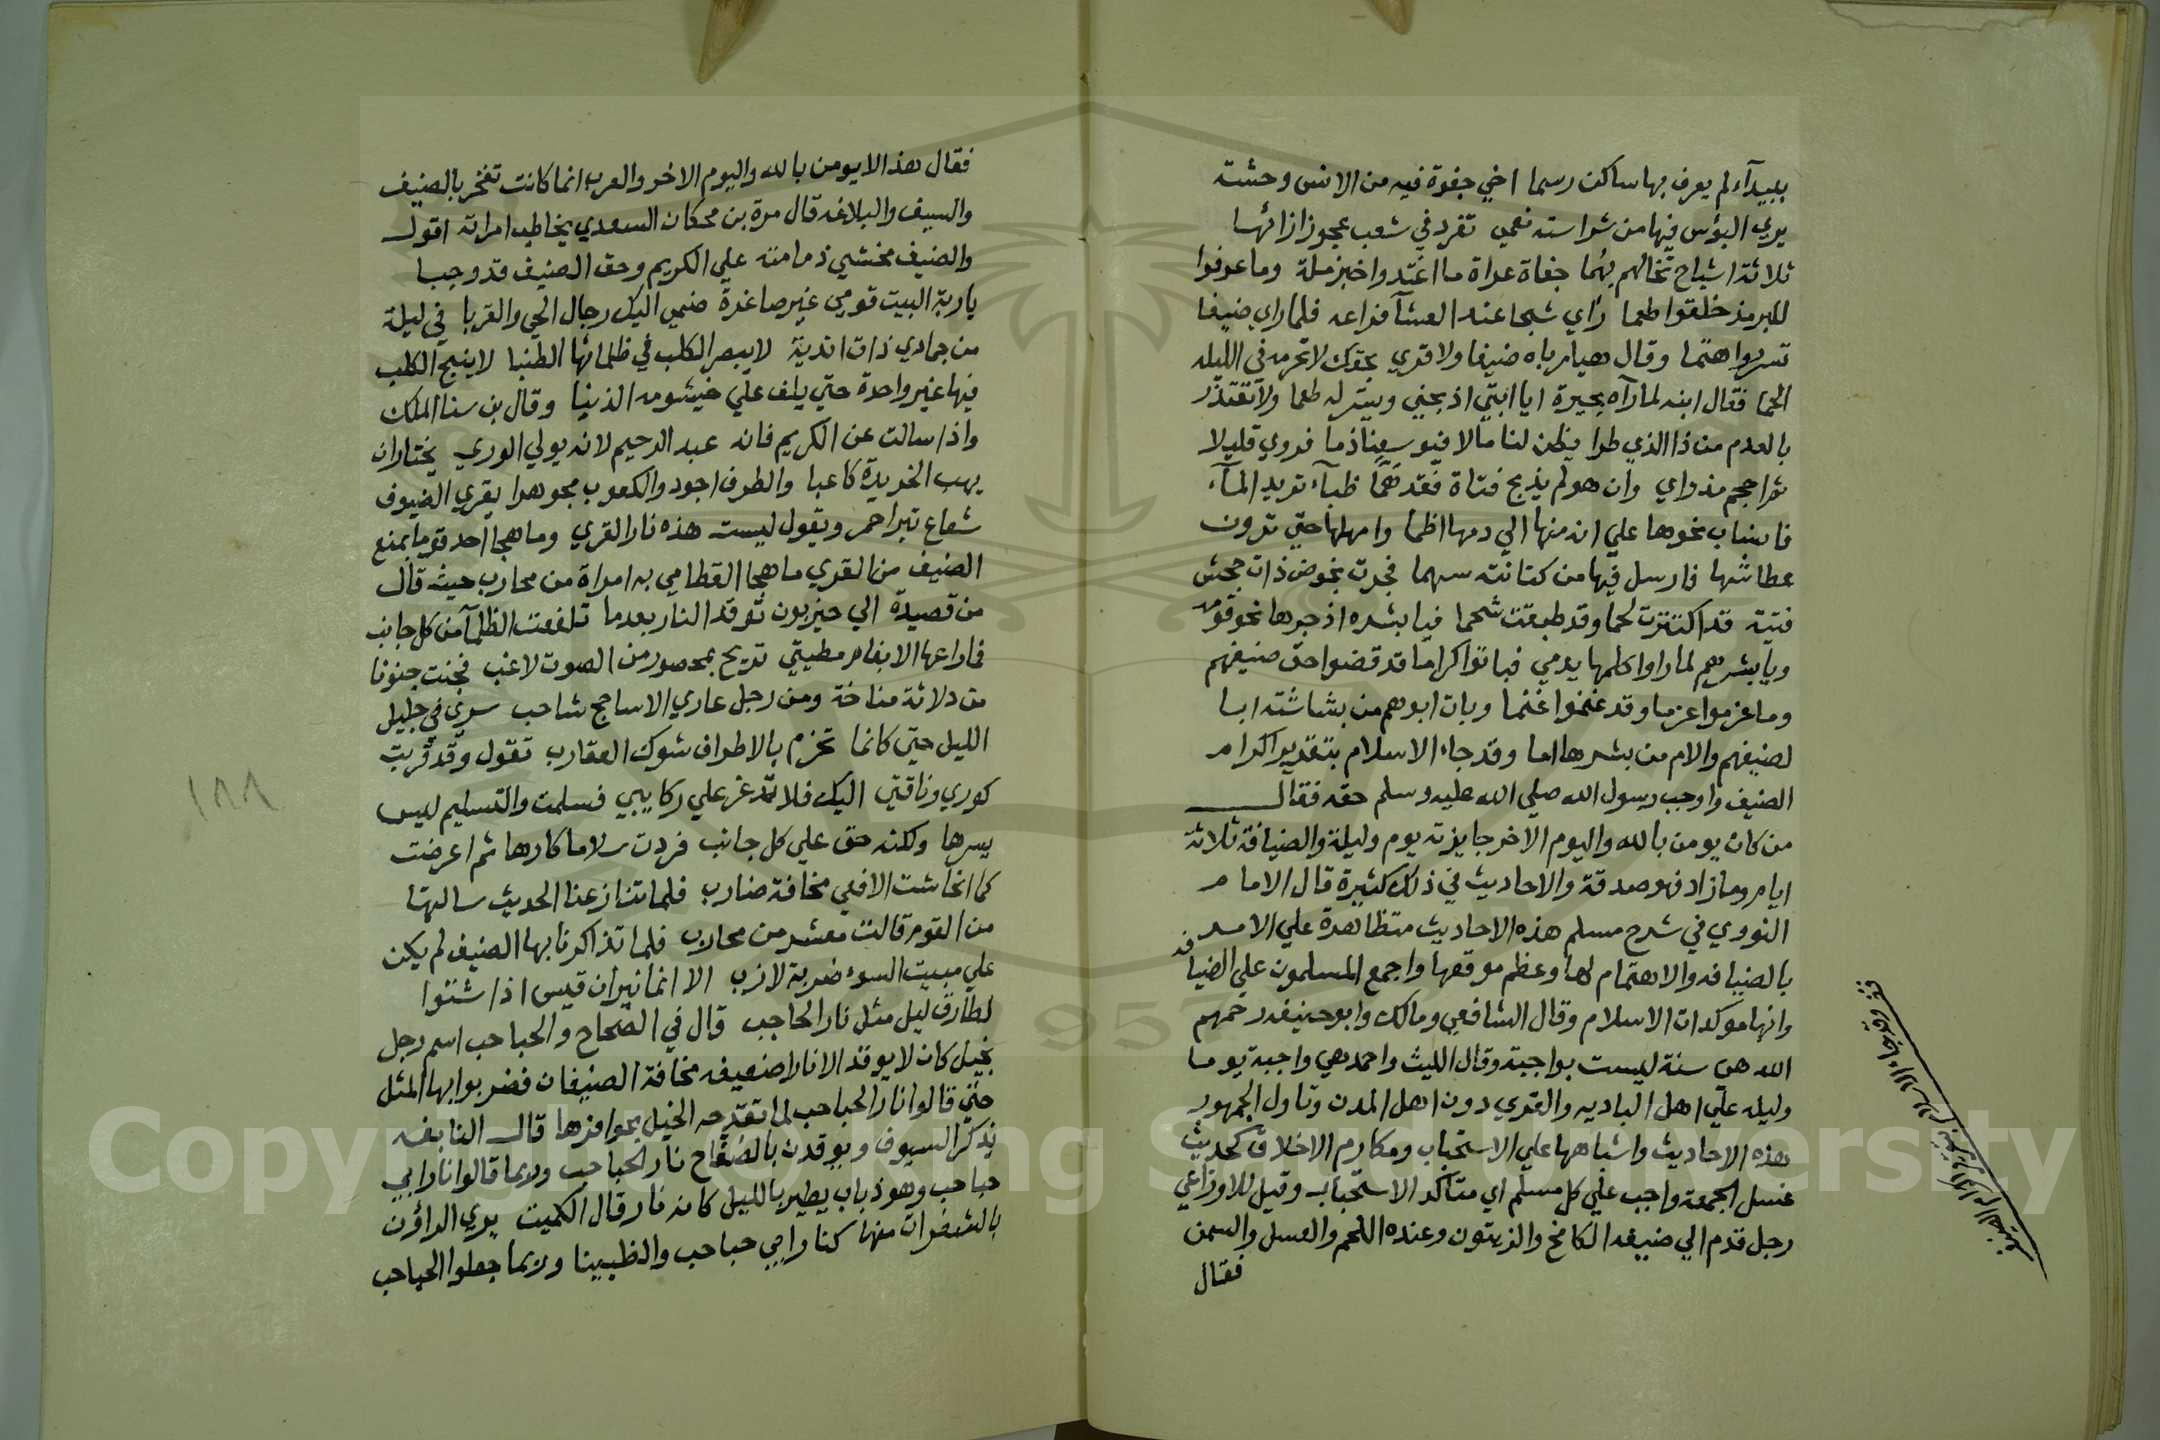 ببيدآء لم يعرف بها ساكن رسما اخي جفوة فيه من الانس وحشة
يري البؤس فيها من شراسته نعمي تفرد في شعب عجوزا ازائها
ثلاثة اشباح تخالهم بهما جفاة عراة ما اغتدوا خبز ملة وما عرفوا
للبر مذ خلقوا طعما رأي شبحا عند العشآ فراعه فلما راي ضيفا
تسور واهتما وقال هيا رباه ضيفا ولا قري بحقك لا تحرمه في الليله
اللحما فقال ابنه لما رآه بحيرة ايا ابتي اذبحني ويسر له طعما ولا تعتذر
بالعدم من ذا الذي طرا يظن لنا مالا فيوسعنا ذما فروي قليلا
ثم احجم مذ راي وان هو لم يذبح فتاة فقد هما ظبآء تريد المآء
فانساب نحوها علي انه منها الي دمها اظما وامهلها حتي تروت
عطاشها فارسل فيها من كنانته سهما فخرت نحوض ذات جحش
فتية قد اكتنزت لحما وقد طبقت شحما فيا بشره اذ جرها نحو قومه
ويا بشرهم لما راوا كلمها يدمي فباتوا كراما قد قضوا حق ضيفهم
وما غرموا غرما وقد غنموا غنما وبات ابوهم من بشاشته ابا
لضيفهم والام من بشرها اما وقد جاء الاسلام بتقدير اكرام
الضيف واوجب رسول الله صلي الله عليه وسلم حقه فقال
من كان يومن بالله واليوم الاخر جايزته يوم وليلة والضيافة ثلاثة
ايام وما زاد فهو صدقة والاحاديث في ذلك كثيرة قال الامام
النووي في شرح مسلم هذه الاحاديث متظاهرة علي الامر
بالضيافه والاهتمام لها وعظم موقعها واجمع المسلمون علي الضيافه
وانها موكدات الاسلام وقال الشافعي ومالك وابو حنيفه رحمهم
الله هي سنة ليست بواجبة وقال الليث واحمد هي واجبة يوما
وليله علي اهل الباديه والقري دون اهل المدن وتاول الجمهور
هذه الاحاديث واشباهها علي الاستحباب ومكارم الاخلاق كحديث
غسل الجمعة واجب علي كل مسلم اي متاكد الاستحباب وقيل للاوزاعي
رجل قدم الي ضيفه الكامخ والزيتون وعنده اللحم والعسل والسمن
فقال
فقال هذا لا يومن بالله واليوم الاخر والعرب انما كانت تفخر بالضيف
والسيف والبلاغه قال مرة بن محكان السعدي يخاطب امراته اقول
والضيف مخشي ذمامته علي الكريم وحق الضيف قد وجبا
ياربة البيت قومي غير صاغرة ضمي اليك رجال الحي والقربا في ليلة
من جمادي ذات اندية لا يبصر الكلب في ظلمائها الطنبا لا ينبح الكلب
فيها غير واحدة حتي يلف علي خيشومه الذنبا وقال بن سنا الملك
واذا سالت عن الكريم فانه عبد الرحيم لانه يولي الوري يختاران
يهب الخريدة كاعبا والطرف اجود والكعوب مجوهرا يقري الضيوف
شعاع تبر احمر ويقول ليست هذه نار القري وما هجا احد قوما بمنع
الضيف من القري ما هجا القطامي به امراة من محارب حيث قال
من قصيدة الي حيزبون توقد النار بعدما تلفعت الظلمآ من كل جانب
فما راعها الا بغام مطيتي تريح بمحصور من الصوت لاغب فجنت جنونا
من دلاثة مناخة ومن رجل عاري الاساجع شاحب سري في جليل
الليل حتي كانما تخزم بالاطراف شوك العقارب تقول وقد قربت
كوري وناقتي اليك فلا تذعر علي ركايبي فسلمت والتسليم ليس
يسرها ولكنه حق علي كل جانب فردت سلاما كارها ثم اعرضت
كما انحاشت الافعي مخافة ضارب فلما تنازعنا الحديث سالتها
من القوم قالت معشر من محارب فلما تذاكرنا بها الضيف لم يكن
علي مبيت السوء ضربة لازب الا انما نيران قيس اذا شتوا
لطارق ليل مثل نار الحباحب قال في الصحاح والحباحب اسم رجل
بخيل كان لا يوقد الا نارا ضعيفه مخافة الضيفان فضربوا بها المثل
حتي قالوا نار الحباحب لما تقدحه الخيل بحوافزها قال النابغه
يذكر السيوف ويوقدن بالصفاح نار الحباحب وربما قالوا نار ابي
حباحب وهو ذباب يطير بالليل كانه نار قال الكميت يري الراؤن
بالشفرات منها كنار ابي حباحب والظبينا وربما جعلوا الحباحب
١٨٨
Copyright © King Saud University
1957